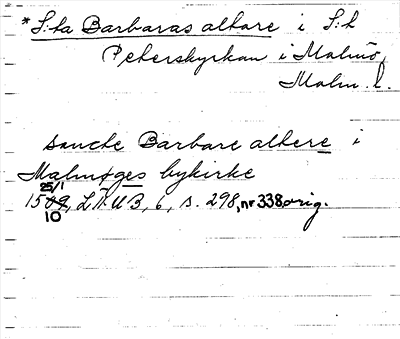 * S:ta Barbaras altare i S:t
Peterskyrkan i Malmö,
Malm. l.
sancte Barbare altere i
Malmøges bykirke
25/1
1509, L.Ä.UB, 6, s. 298, nr 338 orig.
10